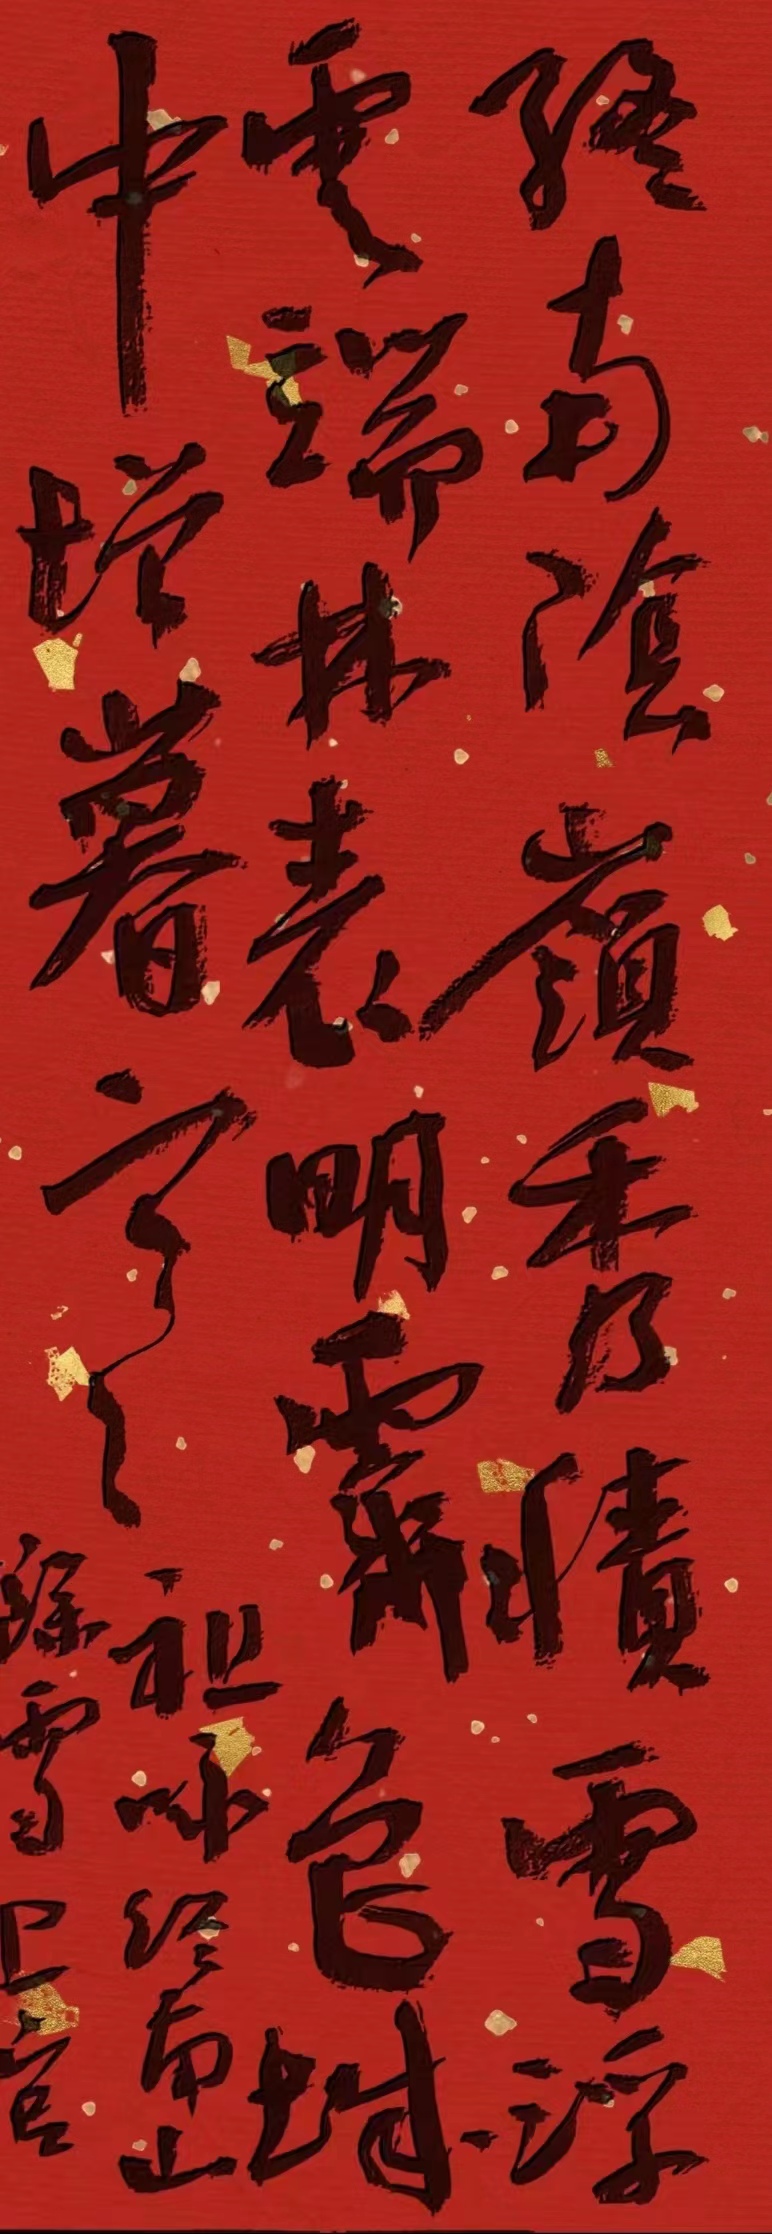 終南陰嶺秀積雪浮
雲端林表明霽色城
中增暮寒
祖詠終南山
餘雪 上官